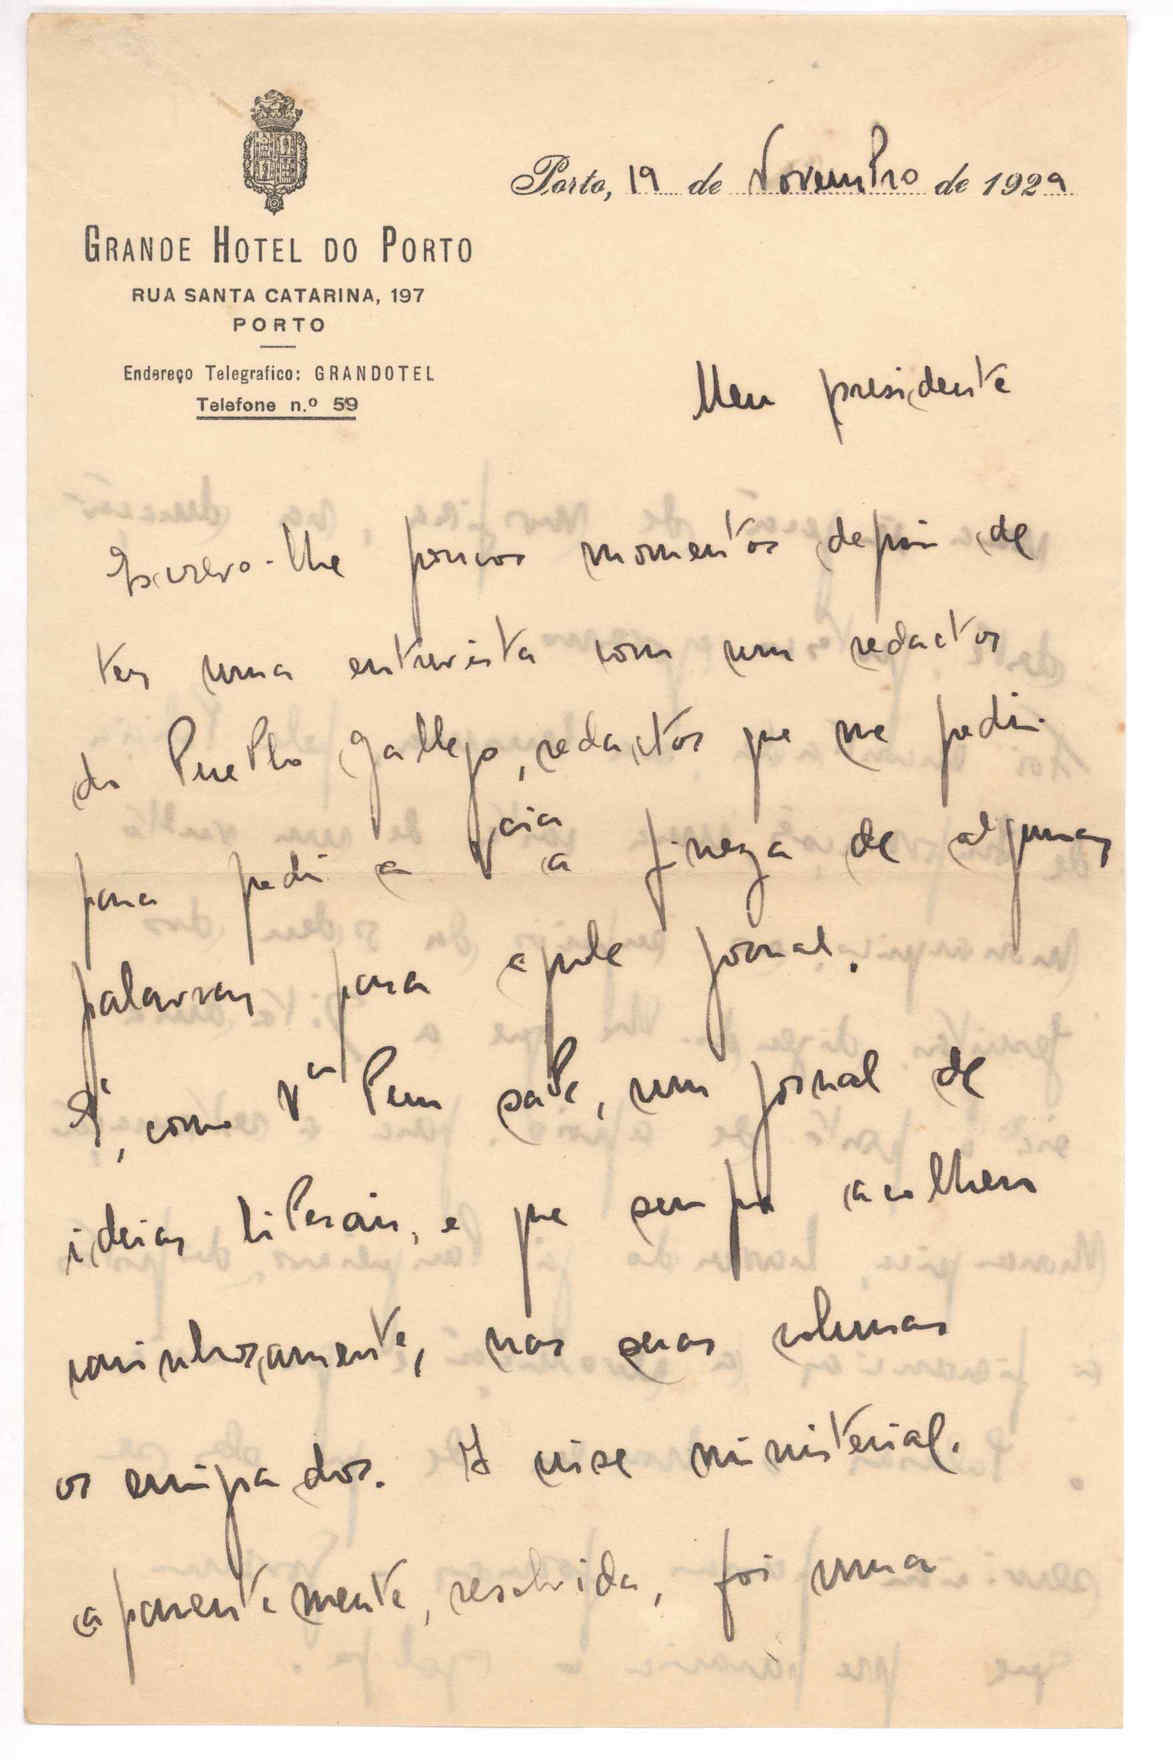 GRANDE HOTEL DO PORTO
RUA SANTA CATARINA, 197
PORTO
Endereço Telegrafico: GRANDOTEL
Telefone n.º 59
Porto, 19 de Novembro de 1929
Meu presidente
Escrevo-lhe poucos momentos depois de
ter uma entrevista com um redactor
do Pueblo Gallego, redactor que me pediu
para pedir a V a fineza de algumas
palavras para aquele jornal.
É, como Vª bem sabe, um jornal de
ideias liberais, e que sempre acolheu
carinhosamente, nas suas colunas
os emigrados. A crise ministerial.
aparentemente, resolvida, foi uma